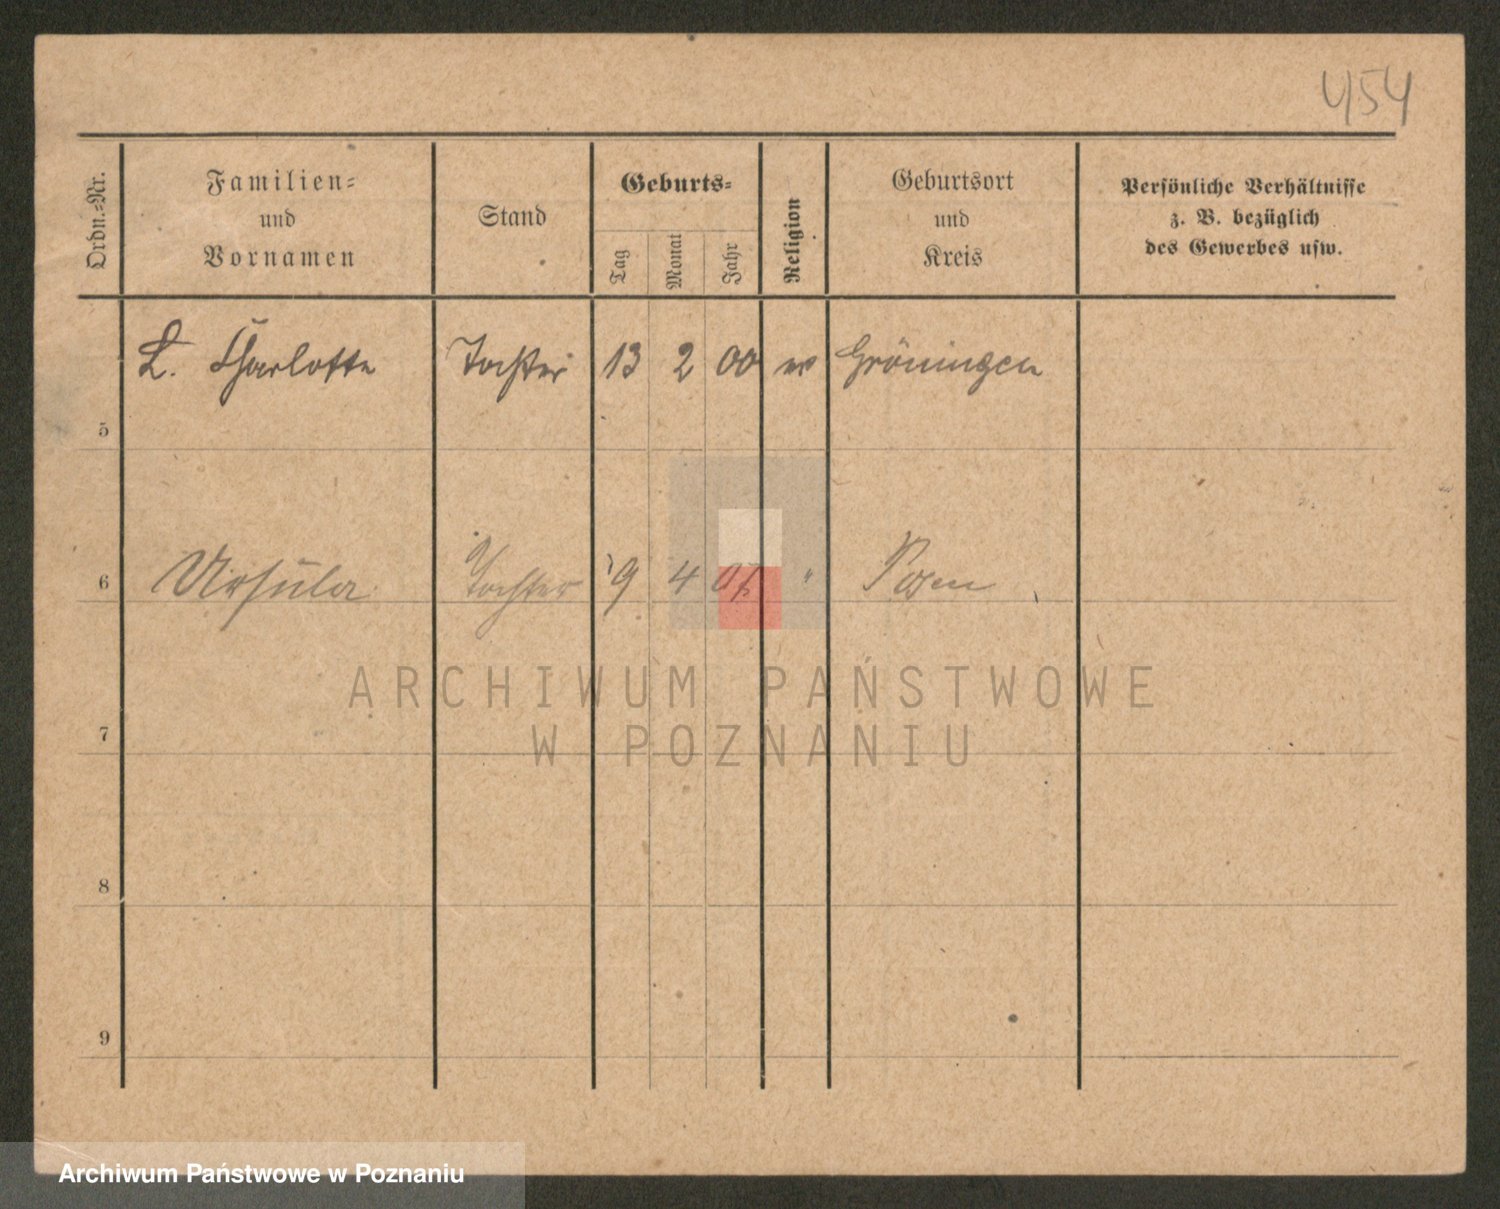 454
Ordn.=Nr.
Familien=
und
Vornamen
Stand
Geburts=
Tag
Monat
Jahr
Religion
Geburtsort
und
Kreis
Persönliche Verhältnisse
z. B. bezüglich
des Gewerbes usw.
L. Charlotte Tochter 13 2 00 ev Gröningen
5
6 Ursula Tochter 9 4 07 " Posen
ARCHIWUM PAŃSTWOWE
7
W POZNANIU
8
9
Archiwum Państwowe w Poznaniu